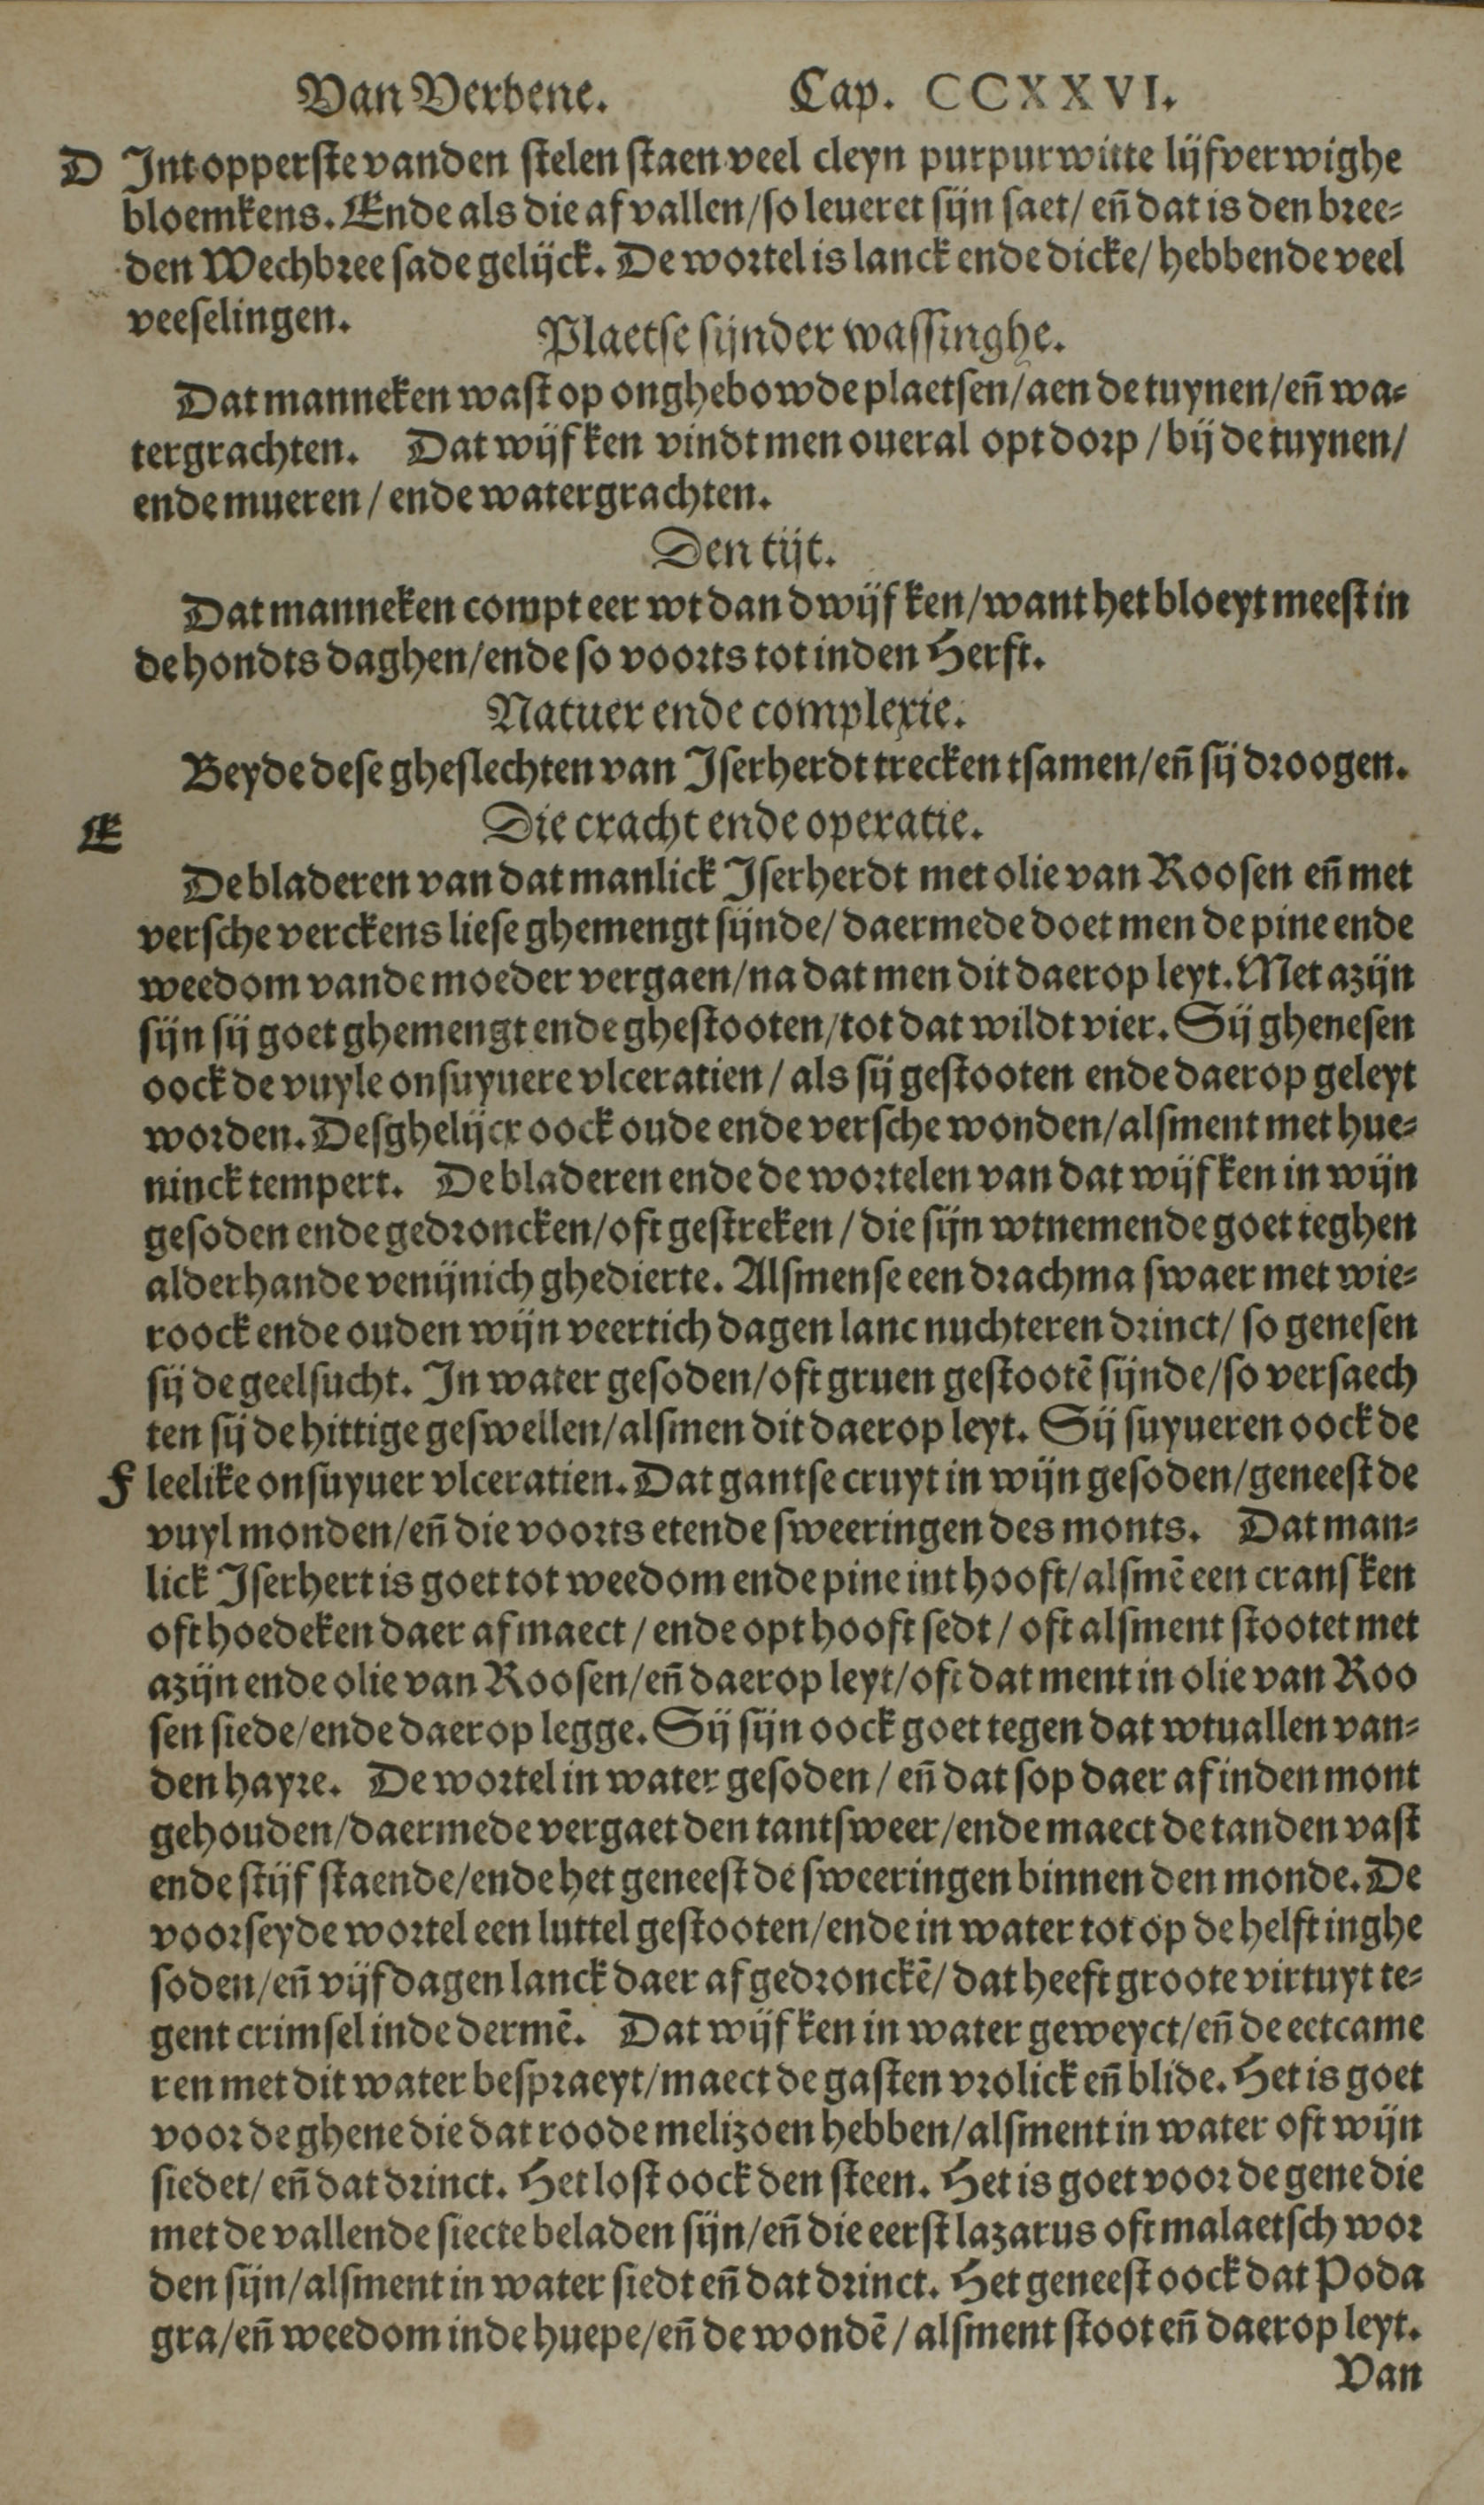 Van Verbene. Cap. CCXXVI.
D Int opperste vanden stelen staen veel cleyn purpur witte lijfverwighe
bloemkens. Ende als die af vallen/so leueret sijn saet/ eñ dat is den bree=
den Wechbree sade gelijck. De wortel is lanck ende dicke/ hebbende veel
veeselingen.
Plaetse sijnder wassinghe.
Dat manneken wast op onghebowde plaetsen/aen de tuynen/eñ wa=
tergrachten. Dat wijfken vindt men oueral opt dorp /bij de tuynen/
ende mueren / ende watergrachten.
Den tijt.
Dat manneken compt eer wt dan dwijfken/want het bloeyt meest in
de hondts daghen/ende so voorts tot inden Herfst.
Natuer ende complexie.
Beyde dese gheslechten van Iserherdt trecken tsamen/eñ sij droogen.
E Die cracht ende operatie.
De bladeren van dat manlick Iserherdt met olie van Roosen eñ met
versche verckens liese ghemengt sijnde/ daermede doet men de pine ende
weedom vande moeder vergaen/na dat men dit daerop leyt. Met azijn
sijn sij goet ghemengt ende ghestooten/tot dat wildt vier. Sij ghenesen
oock de vuyle onsuyuere vlceratien / als sij gestooten ende daerop geleyt
worden. Desghelijcx oock oude ende versche wonden/alsment met hue=
ninck tempert. De bladeren ende de wortelen van dat wijfken in wijn
gesoden ende gedroncken/oft gestreken / die sijn wtnemende goet teghen
alderhande venijnich ghedierte. Alsmense een drachma swaer met wie=
roock ende ouden wijn veertich dagen lanc nuchteren drinct/ so genesen
sij de geelsucht. In water gesoden/oft gruen gestootē sijnde/so versaech
ten sij de hittige geswellen/alsmen dit daerop leyt. Sij suyueren oock de
F leelike onsuyuer vlceratien. Dat gantse cruyt in wijn gesoden/geneest de
vuyl monden/eñ die voorts etende sweeringen des monts. Dat man=
lick Iserhert is goet tot weedom ende pine int hooft/alsmē een cransken
oft hoedeken daer af maect / ende opt hooft sedt / oft alsment stootet met
azijn ende olie van Roosen/eñ daerop leyt/oft dat ment in olie van Roo
sen siede/ende daerop legge. Sij sijn oock goet tegen dat wtuallen van=
den hayre. De wortel in water gesoden / eñ dat sop daer af inden mont
gehouden/daermede vergaet den tantsweer/ende maect de tanden vast
ende stijf staende/ende het geneest de sweeringen binnen den monde. De
voorseyde wortel een luttel gestooten/ende in water tot op de helft inghe
soden/eñ vijf dagen lanck daer af gedronckē/ dat heeft groote virtuyt te=
gent crimsel inde dermē. Dat wijfken in water geweyct/eñ de eetcame
ren met dit water bespraeyt/maect de gasten vrolick eñ blide. Het is goet
voor de ghene die dat roode melizoen hebben/alsment in water oft wijn
siedet/ eñ dat drinct. Het lost oock den steen. Het is goet voor de gene die
met de vallende siecte beladen sijn/eñ die eerst lazarus oft malaetsch wor
den sijn/alsment in water siedt eñ dat drinct. Het geneest oock dat Poda
gra/eñ weedom inde huepe/eñ de wondē / alsment stoot eñ daerop leyt.
Van